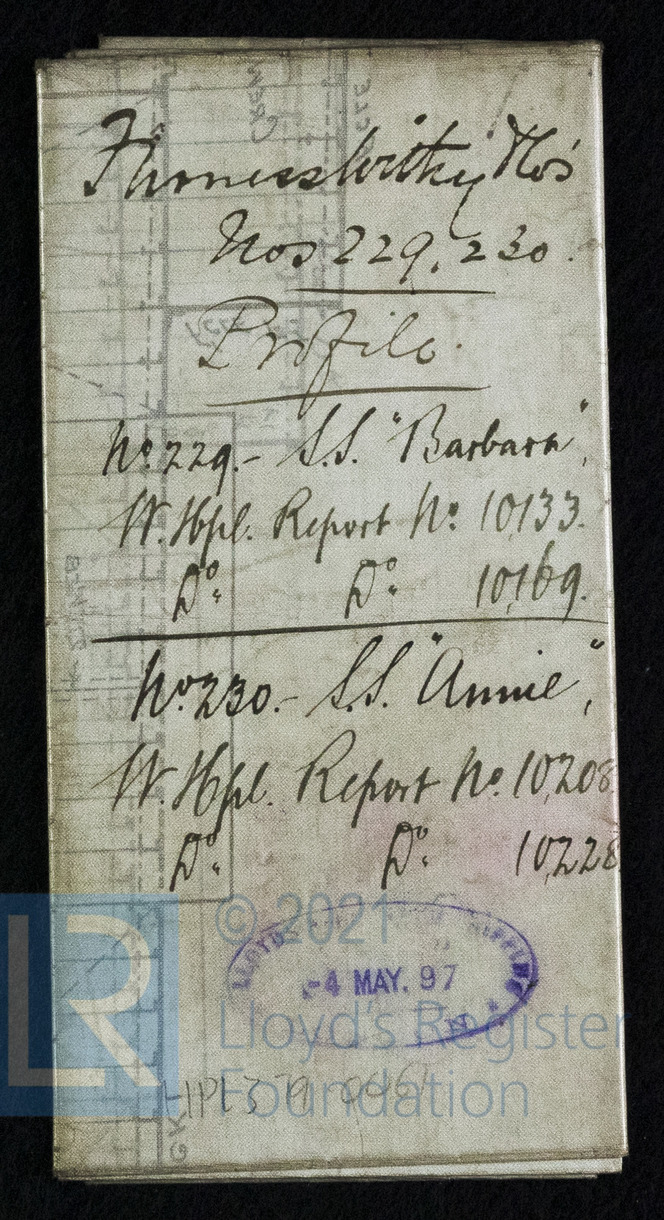 Furness Withy No's
Nos 229, 230.
Profile.
No. 229.- S.S. "Barbara",
W. Hpl. Report No. 10,133.
Do. Do. 10,169.
No. 230.- S.S. "Annie",
W. Hpl. Report No. 10,208
Do. Do. 10,228
LLOYDS SHIPPING
-4 MAY. 97
© 2021
LR
Lloyd's Register
Foundation